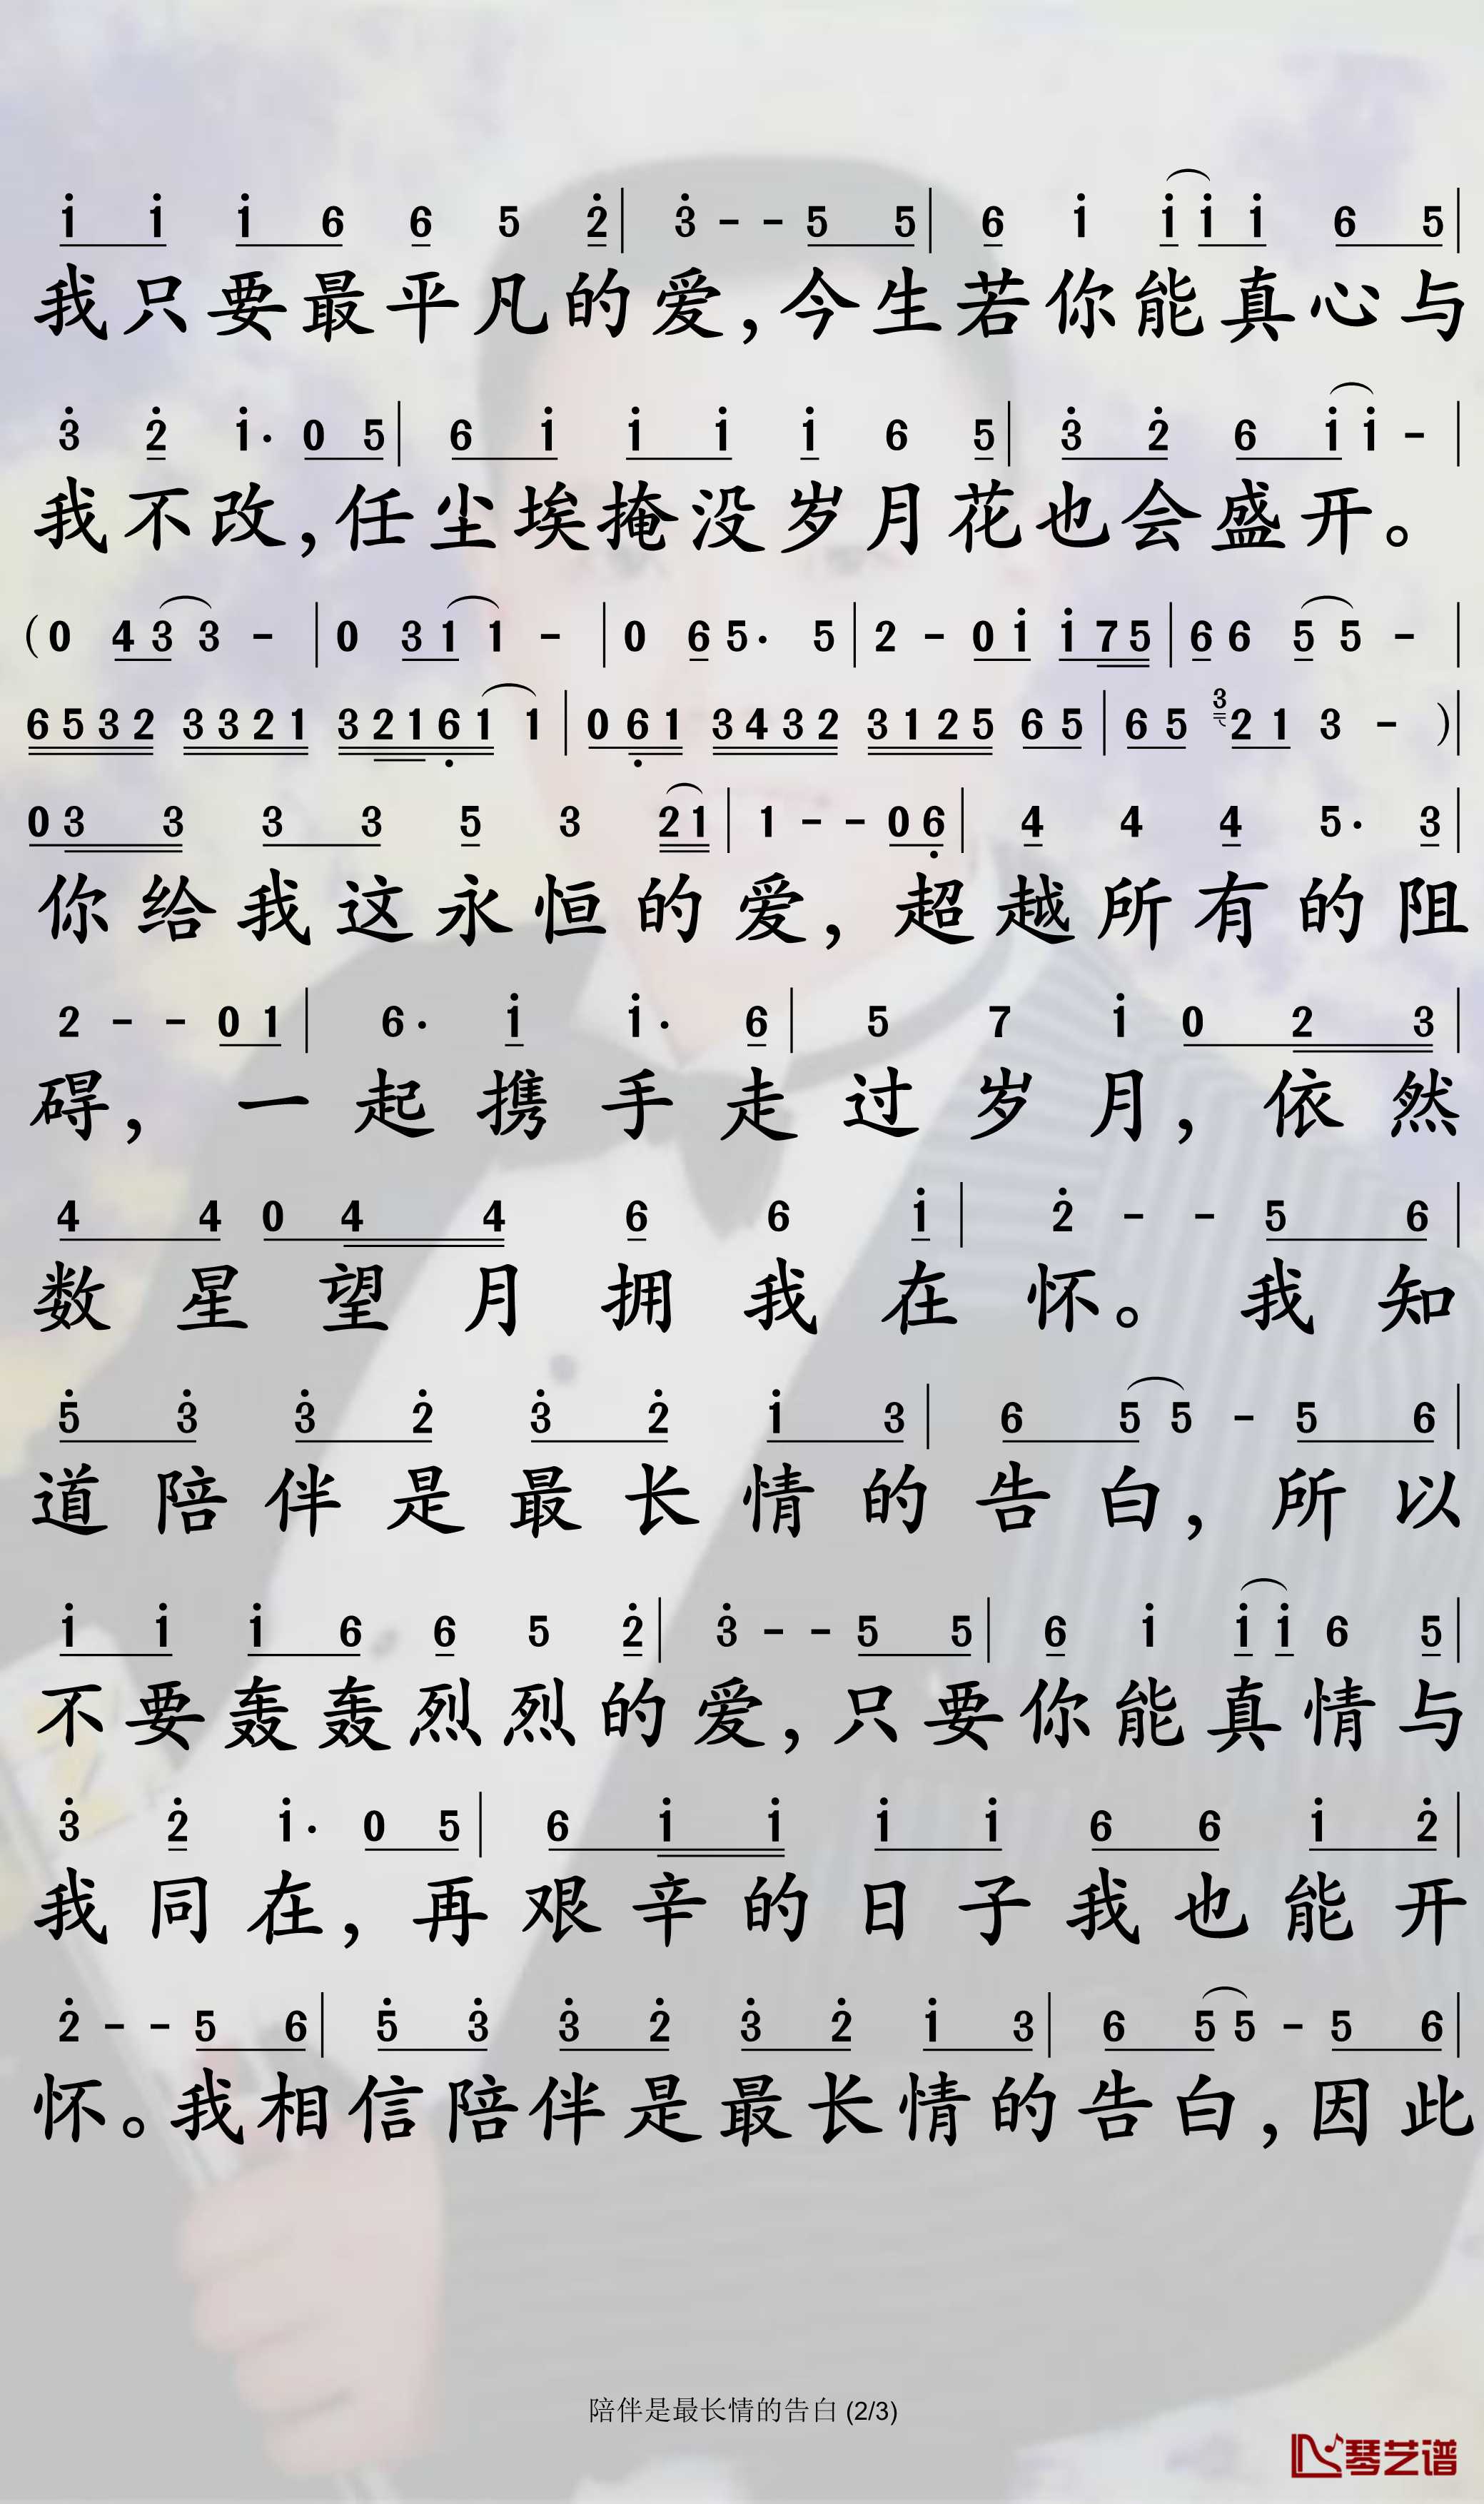 i i i 6 6 5 2̇ | 3̇ - - 5 5 | 6 i i i i 6 5 |
我只要最平凡的爱,今生若你能真心与
3̇ 2̇ i· 0 5 | 6 i i i i 6 5 | 3̇ 2̇ 6 i i - |
我不改,任尘埃掩没岁月花也会盛开。
(0 4 3 3 - | 0 3 1 1 - | 0 6 5· 5 | 2 - 0 i i 7 5 | 6 6 5 5 - |
6 5 3 2 3 3 2 1 3 2 1 6̣ 1 1 | 0 6̣ 1 3 4 3 2 3 1 2 5 6 5 | 6 5 3 2 1 3 - )|
0 3 3 3 3 5 3 2 1 | 1 - - 0 6̣ | 4 4 4 5· 3 |
你给我这永恒的爱,超越所有的阻
2 - - 0 1 | 6· i i· 6 | 5 7 i 0 2 3 |
碍,一起携手走过岁月,依然
4 4 0 4 4 6 6 i | 2̇ - - 5 6 |
数星望月拥我在怀。我知
5̇ 3̇ 3̇ 2̇ 3̇ 2̇ i 3 | 6 5 5 - 5 6 |
道陪伴是最长情的告白,所以
i i i 6 6 5 2̇ | 3̇ - - 5 5 | 6 i i i 6 5 |
不要轰轰烈烈的爱,只要你能真情与
3̇ 2̇ i· 0 5 | 6 i i i i 6 6 i 2̇ |
我同在,再艰辛的日子我也能开
2̇ - - 5 6 | 5̇ 3̇ 3̇ 2̇ 3̇ 2̇ i 3 | 6 5 5 - 5 6 |
怀。我相信陪伴是最长情的告白,因此
陪伴是最长情的告白 (2/3)
琴艺谱